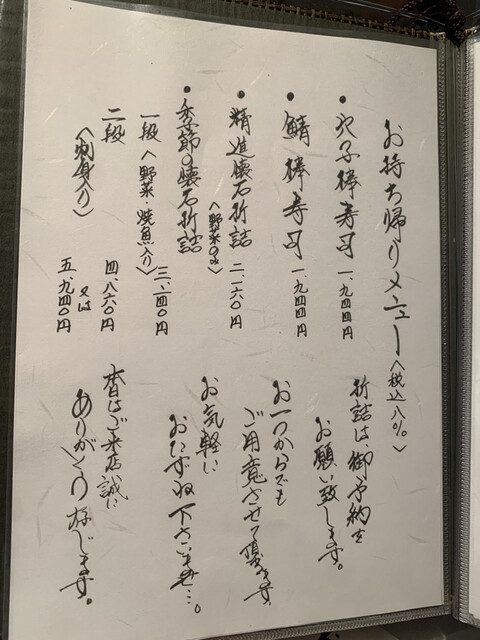 お持ち帰りメニュー〈税込八%〉
• 穴子棒寿司 一、九四四円
• 鯖棒寿司 一、九四四円
• 精進懐石折詰〈野菜のみ〉 二、一六〇円
• 季節の懐石折詰
一段〈野菜・焼魚入り〉 三、二四〇円
二段 四、八六〇円
〈刺身入り〉 又は
五、九四〇円
折詰は、御予約を
お願い致します。
お一つからでも
ご用意させて頂きます
お気軽に
おたずね下さいませ…。
本日はご来店誠に
ありがとう存じます。